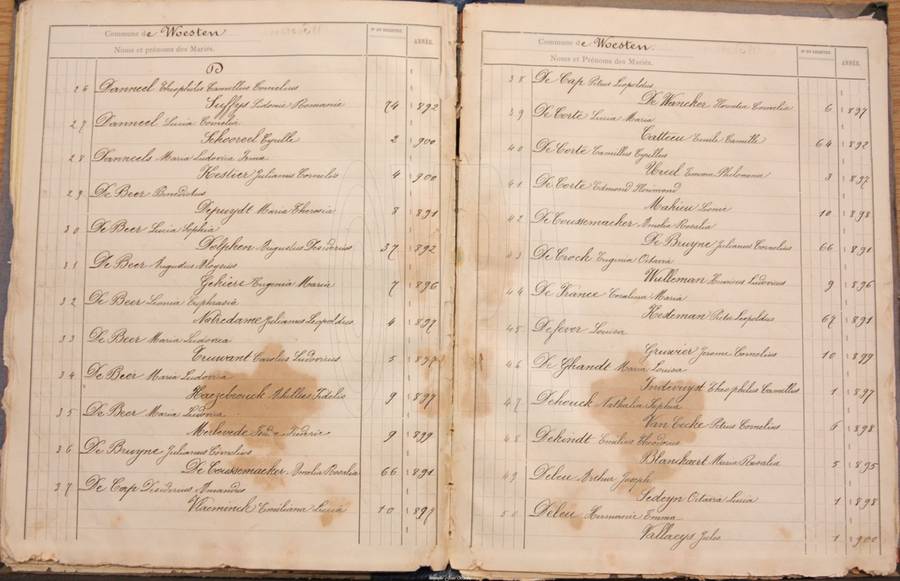 Commune de Woesten
Noms et prénoms des Mariés.
Nº DU REGISTRE.
ANNÉE.
D
26 Danneel Theophilus Camillus Cornelius
Seyffys Ludovica Romania 74 1892
27 Danneel Lucia Cornelia
Schooreel Cyrille 2 1900
28 Danneels Maria Ludovica Irma
Kestier Julianus Cornelis 4 1900
29 De Beer Benedictus
Depuydt Maria Theresia 8 1891
30 De Beer Lucia Sophia
Dolphen Augustus Desiderius 37 1892
31 De Beer Augustus Aloysius
Gekiere Eugenia Maria 7 1896
32 De Beer Leonia Euphrasia
Notredame Julianus Leopoldus 4 1897
33 De Beer Maria Ludovica
Truwant Carolus Ludovicus 5 1897
34 De Beer Maria Ludovica
Haezebrouck Achilles Fidelis 9 1897
35 De Beer Maria Ludovica
Merlevede Frederic 9 1899
36 De Bruyne Julianus Cornelius
De Coussemaeker Amelia Rosalia 66 1891
37 De Cap Desiderius Amandus
Vlaminck Emiliana Lucia 10 1897
Commune de Woesten.
Noms et Prénoms des Mariés.
Nº DU REGISTRE.
ANNÉE.
38 De Cap Petrus Leopoldus
De Wancker Horentia Cornelia 6 1897
39 De Corte Lucia Maria
Catteeu Emile Camille 64 1892
40 De Corte Camillus Cyrillus
Ureel Emma Philomena 3 1897
41 De Corte Edmond Florimond
Mahieu Leonie 10 1898
42 De Coussemaeker Amelia Rosalia
De Bruyne Julianus Cornelius 66 1891
43 De Crock Eugenia Octavia
Wulleman Henricus Ludovicus 9 1896
44 De France Coralina Maria
Hedeman Petrus Leopoldus 67 1891
45 Defever Louisa
Gruwier Jerome Cornelius 10 1899
46 De Ghrandt Maria Louisa
Indevuyst Theophilus Camillus 1 1897
47 Dehouck Nathalia Sophia
Van Eecke Petrus Cornelius 6 1898
48 Dekindt Emelius Theodorus
Blanckaert Maria Rosalia 5 1895
49 Deleu Arthur Joseph
Sedeyn Octavia Lucia 1 1898
50 Deleu Hermanie Emma
Vallaeys Jules 1 1900